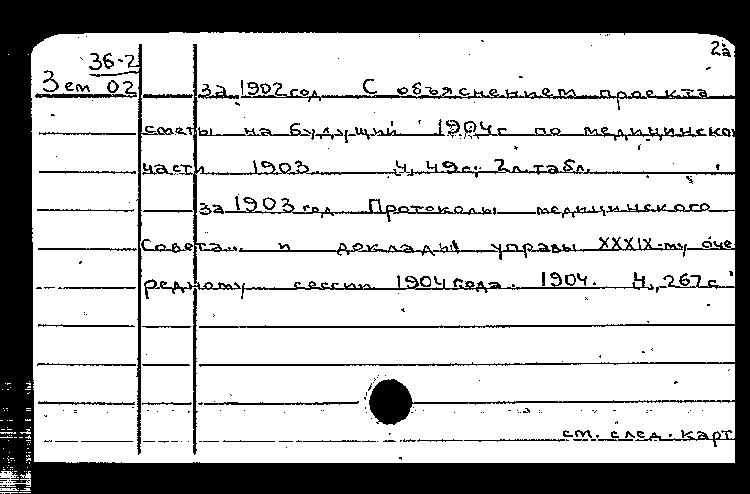 2а
36-2
Зем 02 за 1902 год С объяснением проекта
сметы на будущий 1904г по медицинско
части 1903. Ч, 49с; 2л.табл.
за 1903 год Протоколы медицинского
Совета... и доклады управы XXXIX-му оче
редному сессии 1904 года. 1904. Ч, 267с
см. след. карт